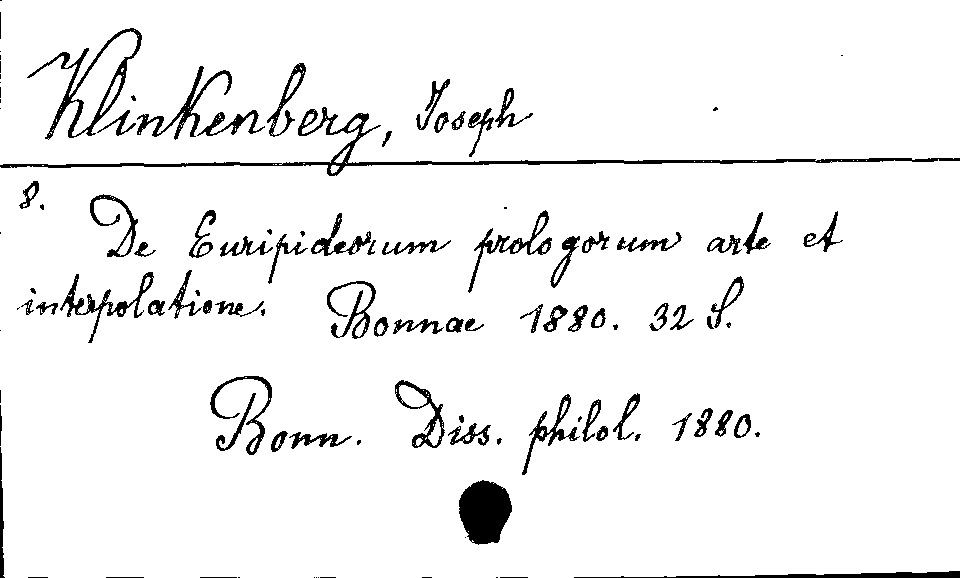 Klinkenberg, Joseph
8.
De Euripideorum prologorum arte et
interpolatione. Bonnae 1880. 32 S.
Bonn. Diss. philol. 1880.